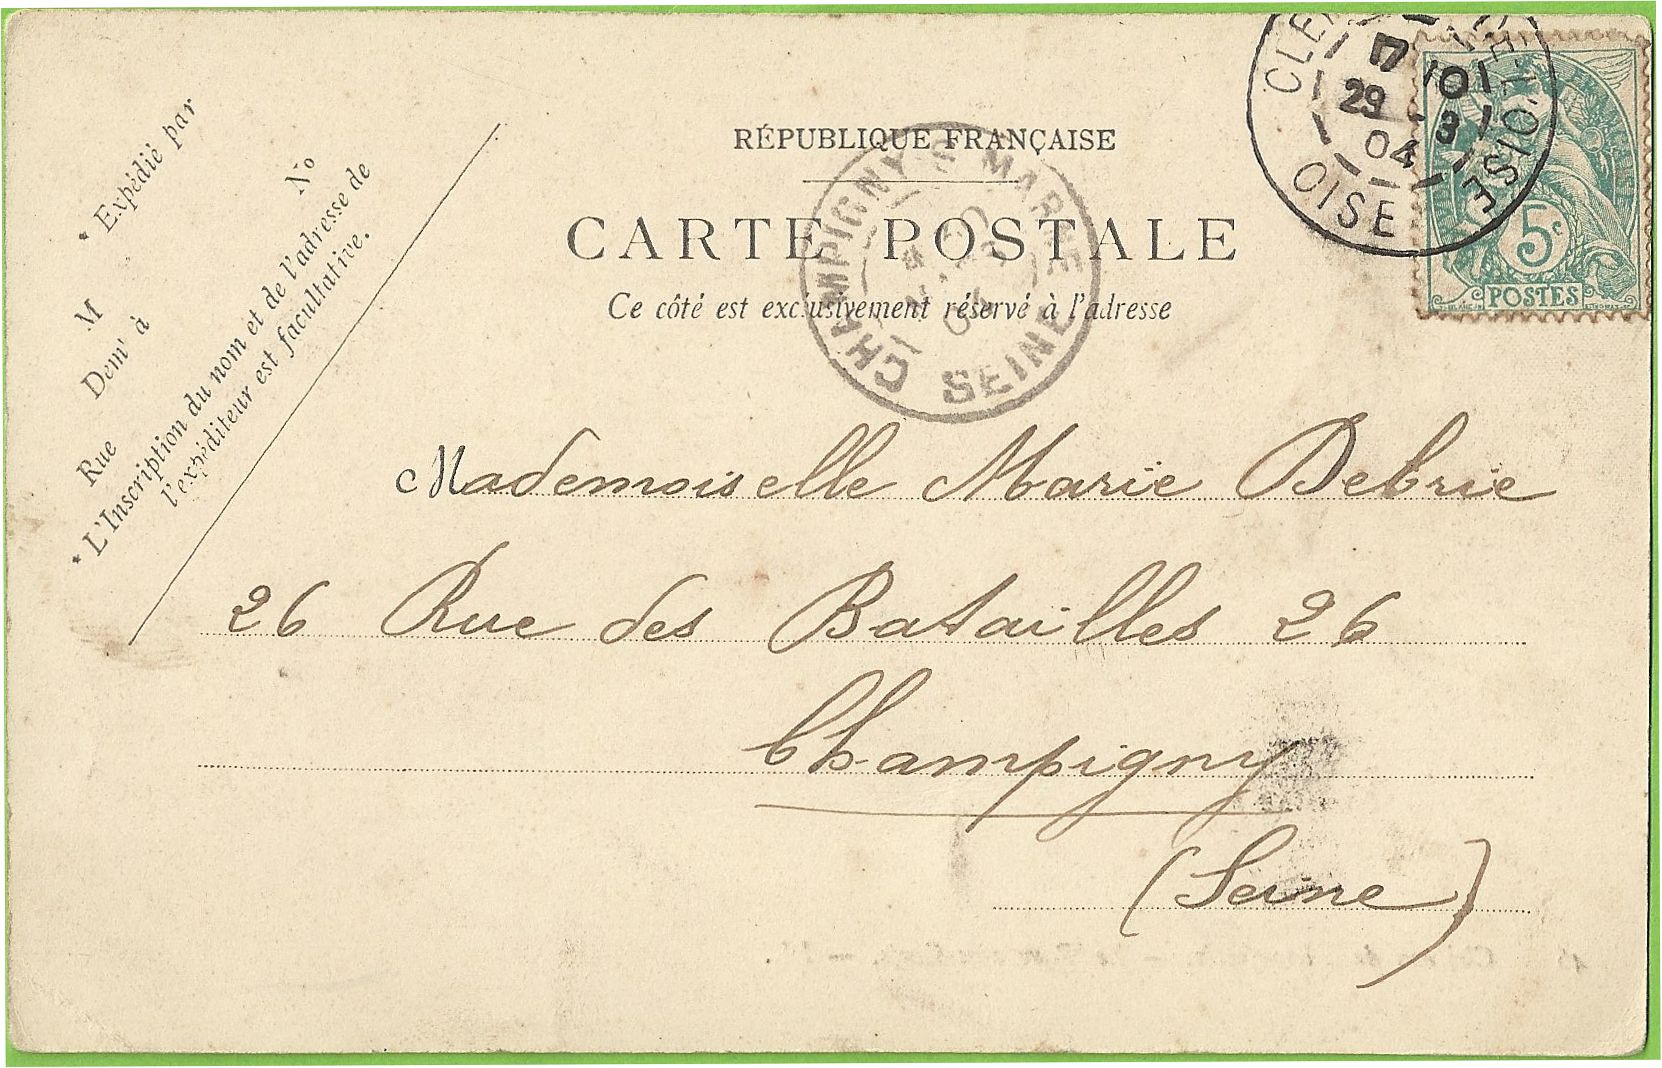 * Expédié par
M
No
Demt à
Rue
* L'Inscription du nom et de l'adresse de
l'expéditeur est facultative.
RÉPUBLIQUE FRANÇAISE
CARTE POSTALE
Ce côté est exclusivement réservé à l'adresse
CHAMPIGNY S MARNE
04
SEINE
CLE DE-L'OISE
17
29 3
04
OISE
5c
POSTES
Mademoiselle Marie Debrie
26 Rue des Batailles 26
Champigny
(Seine)